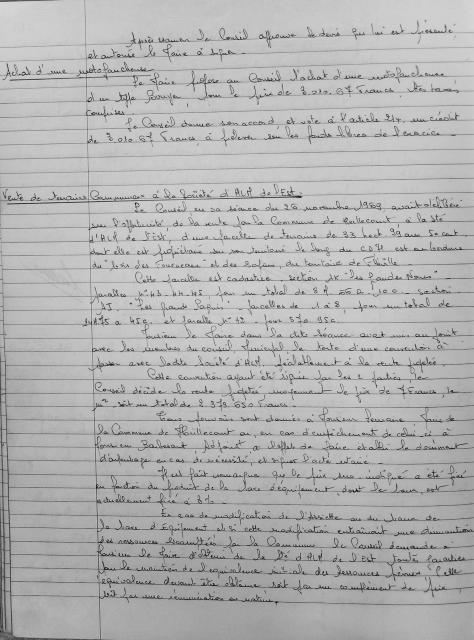 Après examen le Conseil approuve le devis qui lui est présenté
et autorise le Maire à signer.
Achat d'une motofaucheuse
Le Maire propose au Conseil l'achat d'une motofaucheuse
d'un type Bouyer, pour le prix de 3.010.67 Francs, toutes taxes
comprises.
Le Conseil donne son accord et vote à l'article 214, un crédit
de 3.010.67 Francs, à prélever sur les fonds libres de l'exercice.
Vente de terrains Communaux à la Société d'HLM de l'Est.
Le Conseil, en sa séance du 26 novembre 1969, avait délibéré
sur l'opportunité, de la vente par la Commune de à la Sté
d'HLM de l'Est, d'une parcelle de terrains de 33 hect 99 ares 50 cent.
dont elle est propriétaire sur son territoire le long du CD et en bordure
du "bois des et des Sapins, du territoire de
Cette parcelle est cadastrée section "les Grandes Noues"
parcelles n° 43 - 44 - 45, pour un total de section
"Les grands Sapins" - parcelles de 1 à 8, pour un total de
a 45c, et parcelle n° 12 pour
Monsieur le Maire dans la dite séance avait mis au point
avec les membres du conseil, le texte d'une convention à
passer avec ladite Société d'HLM, préalablement à la vente projetée.
Cette convention ayant été signée par les 2 parties, le
Conseil décide la vente projetée moyennant le prix de 7 Francs, le
m² soit un total de 2 379 650 Francs.
Tous pouvoirs sont donnés à Monsieur Maire de
la Commune de ou, en cas d'empêchement de celui-ci à
Monsieur Adjoint à l'effet de faire établir le document
d'arpentage en cas de nécessité, et signer l'acte
Il est fait remarquer que le prix sus-indiqué a été fixé
en fonction du produit de la taxe d'équipement, dont le taux est
actuellement fixé à 3%.
En cas de modification de l'Assiette ou du taux de
la taxe d'Equipement et si cette modification entraînait une diminution
des ressources par la Commune, le Conseil demande à
Monsieur le Maire d'obtenir de la Sté d'HLM de l'Est toutes garanties
pour le maintien de l'équivalence initiale des Ressources prévues. Cette
équivalence devant être obtenue soit par un complément de prix,
soit par une rémunération en nature.